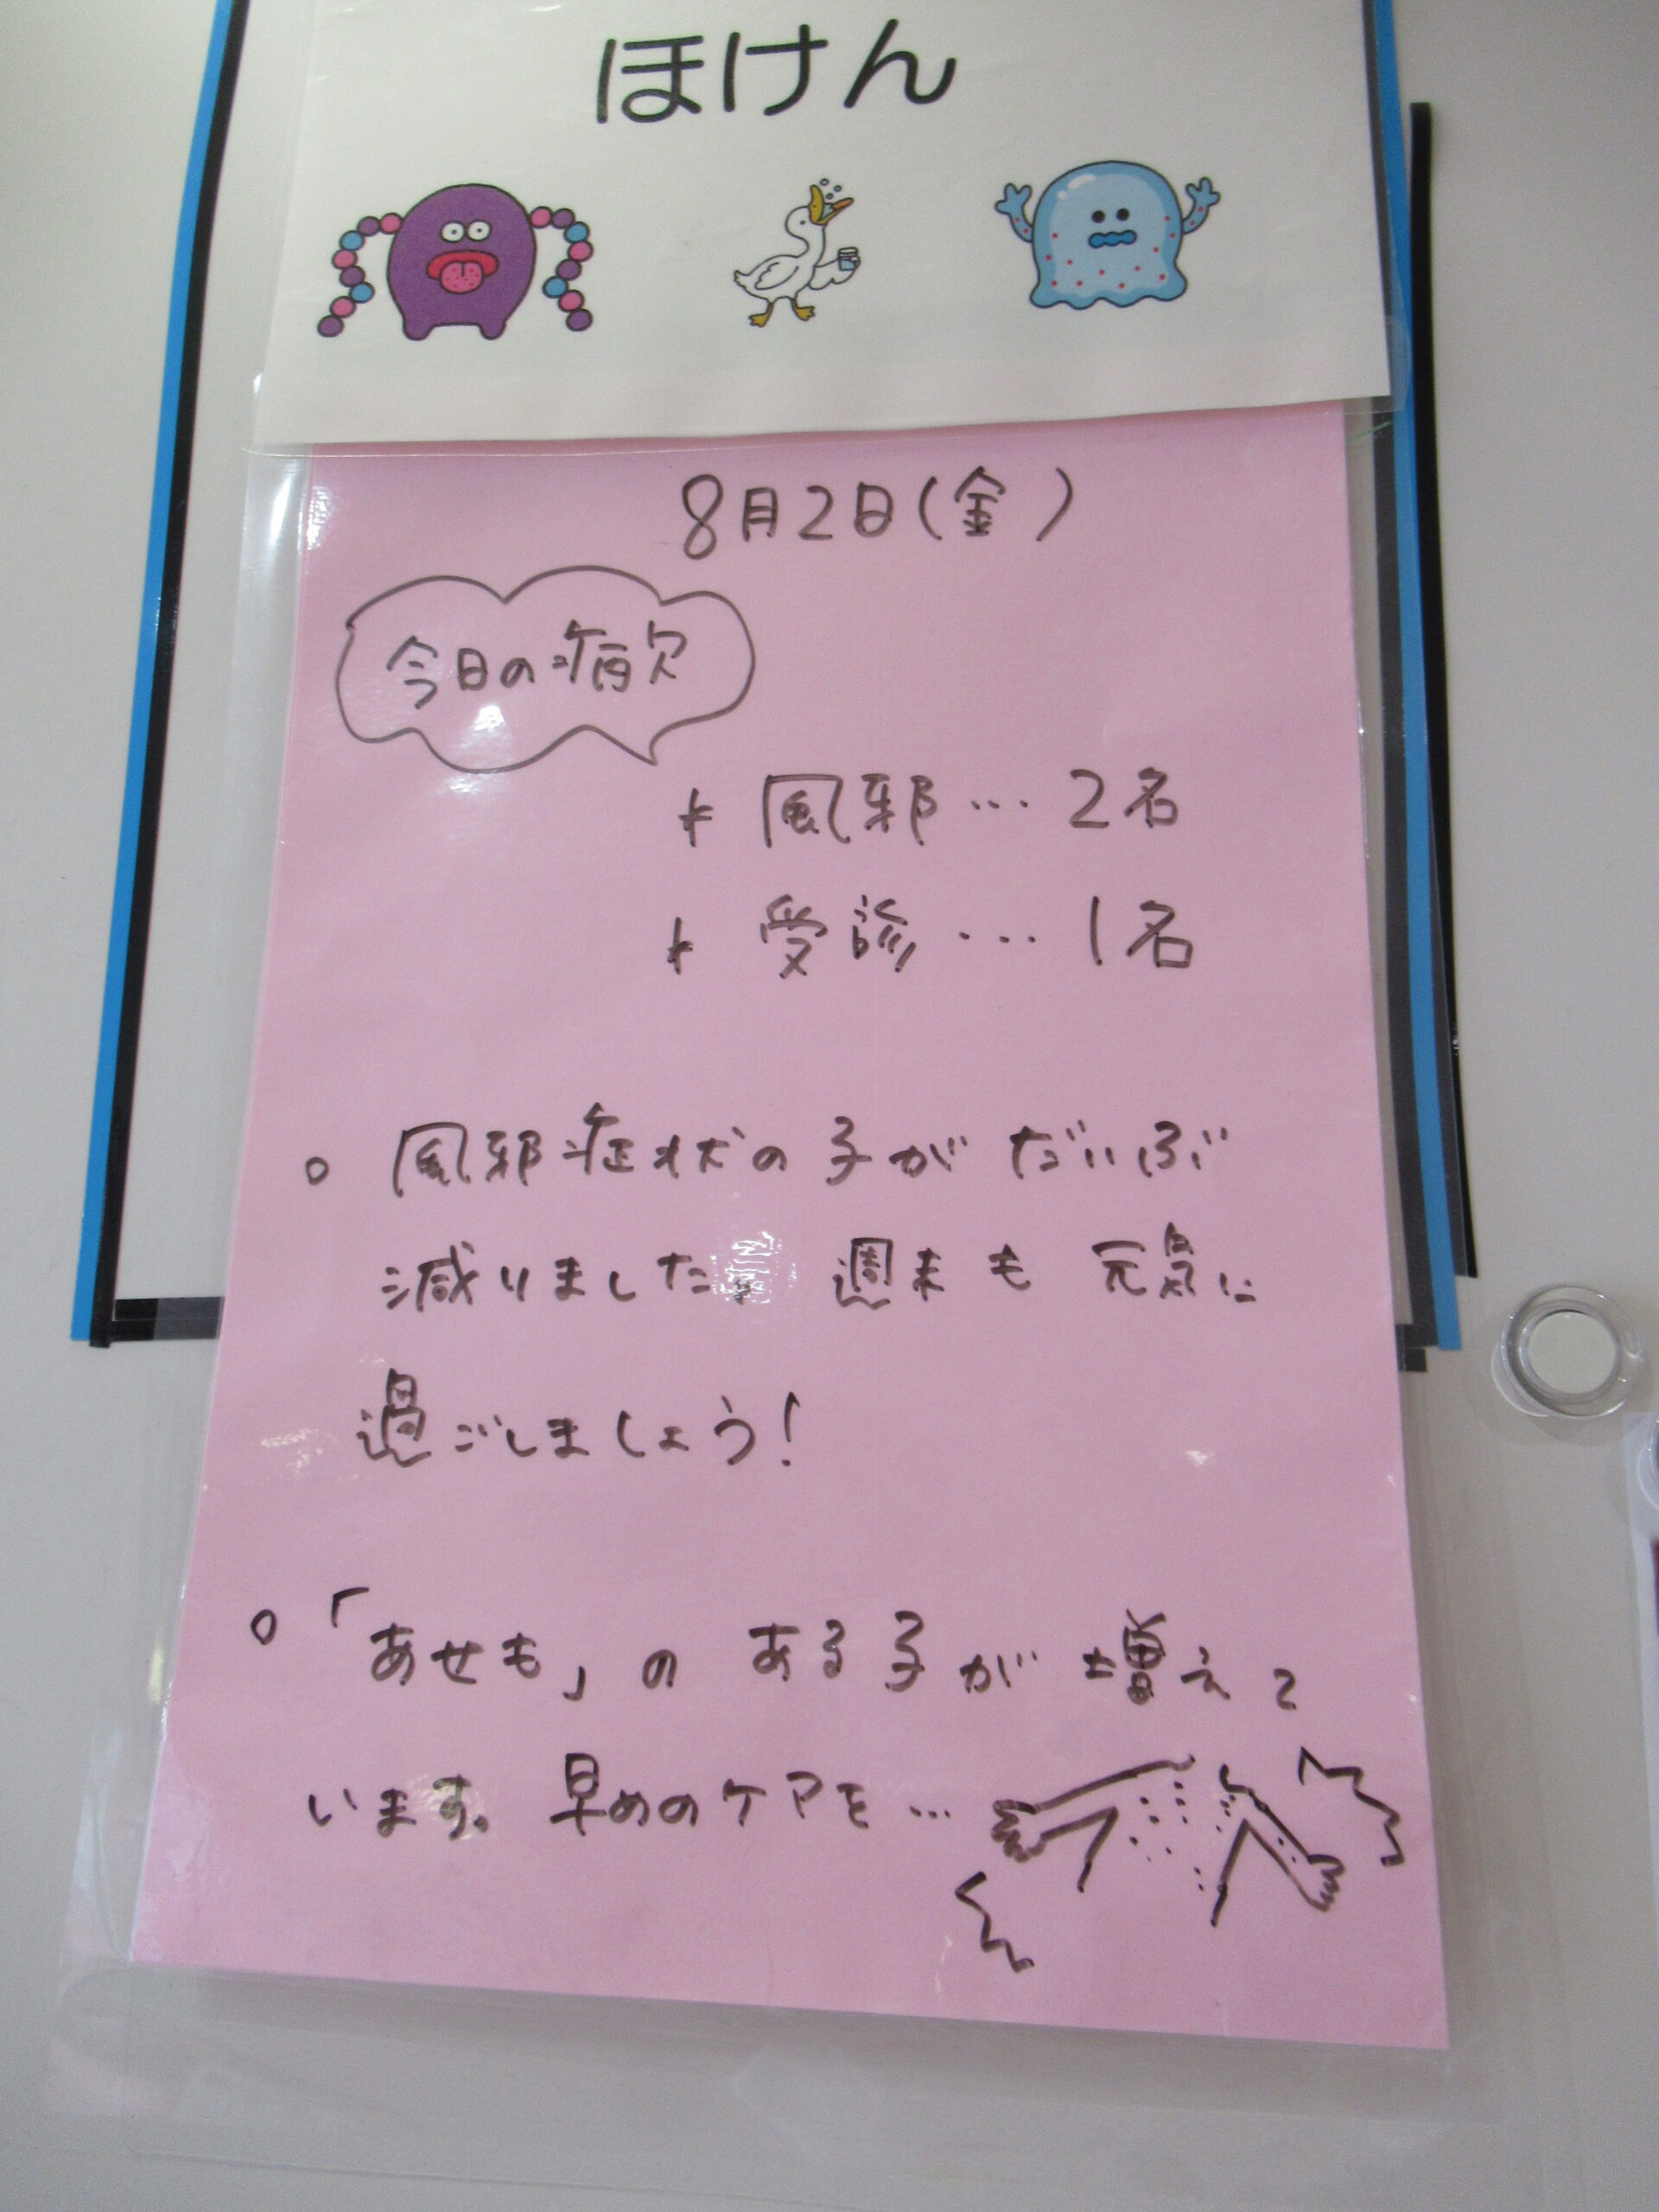 ほけん
8月2日(金)
今日の病欠
* 風邪…2名
* 受診…1名
○ 風邪症状の子がだいぶ
減りました。週末も元気に
過ごしましょう!
○「あせも」のある子が増えて
います。早めのケアを…